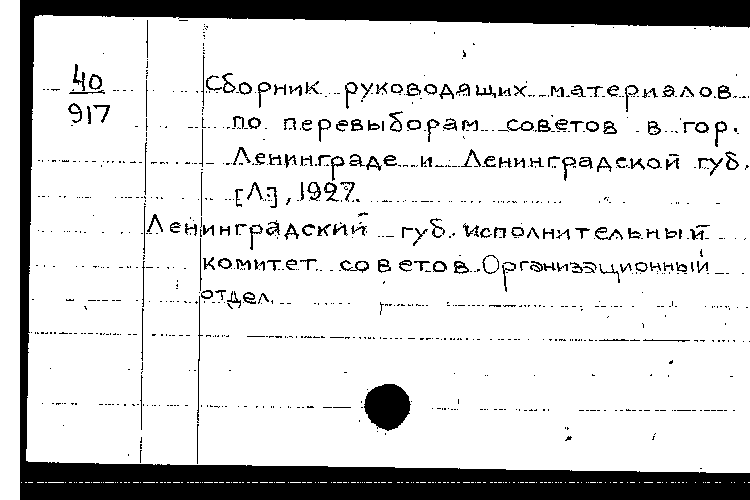 40
917
Сборник руководящих материалов
по перевыборам советов в гор.
Ленинграде и Ленинградской губ.
[Л.], 1927.
Ленинградский губ. исполнительный
комитет советов. Организационный
отдел.